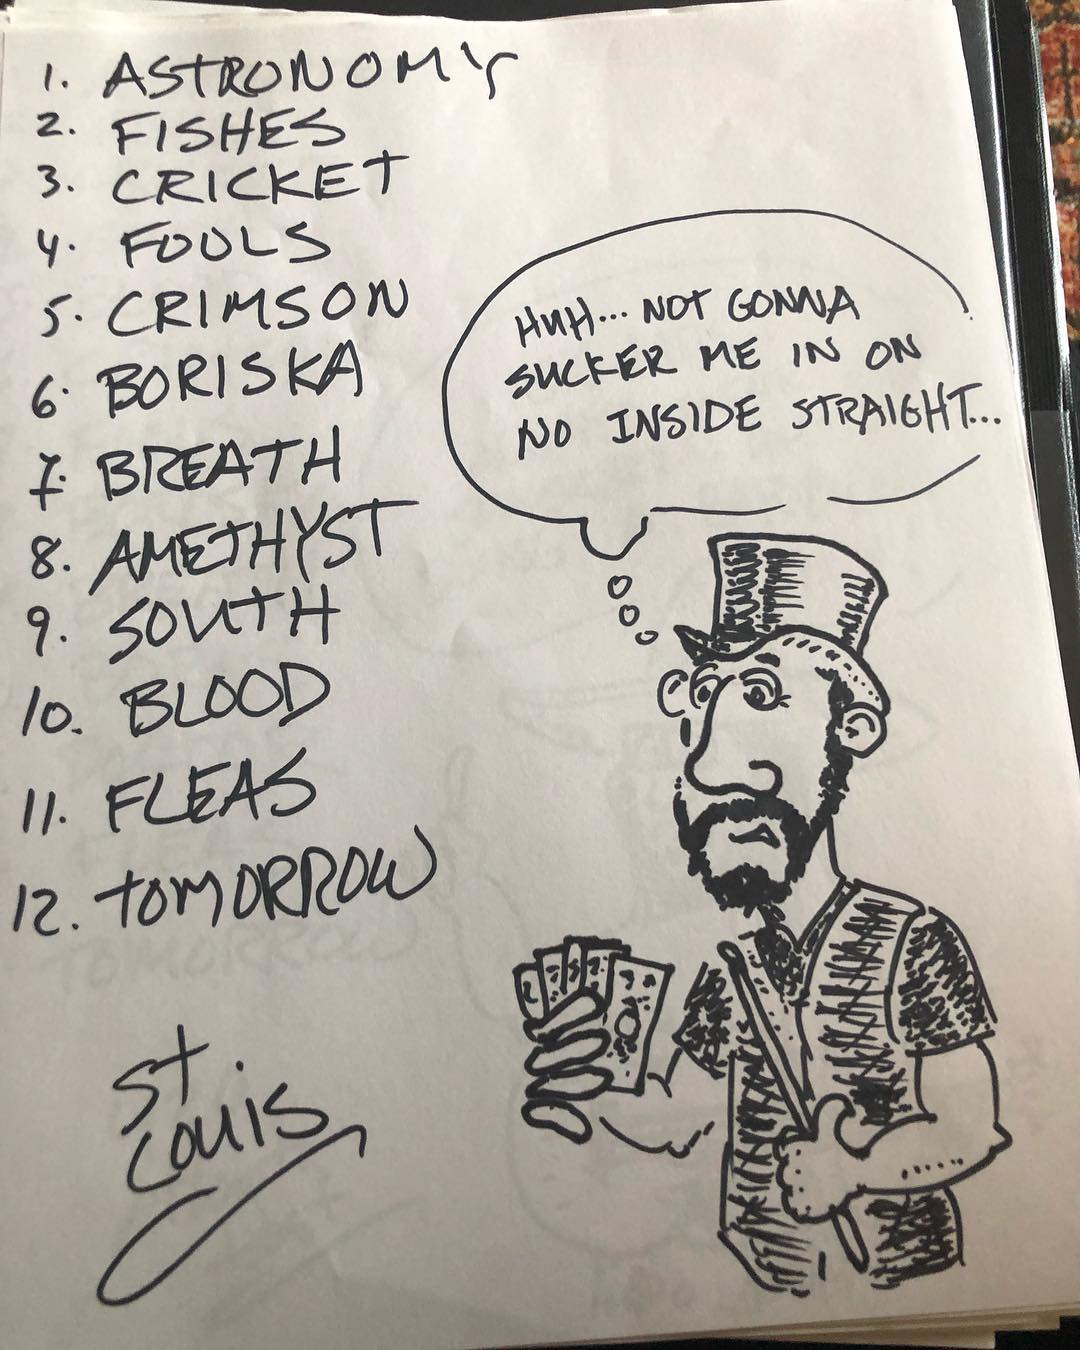 1. ASTRONOMY
2. FISHES
3. CRICKET
4. FOULS
5. CRIMSON
6. BORISKA
7. BREATH
8. AMETHYST
9. SOUTH
10. BLOOD
11. FLEAS
12. TOMORROW
HUH... NOT GONNA
SUCKER ME IN ON
NO INSIDE STRAIGHT...
St
Louis